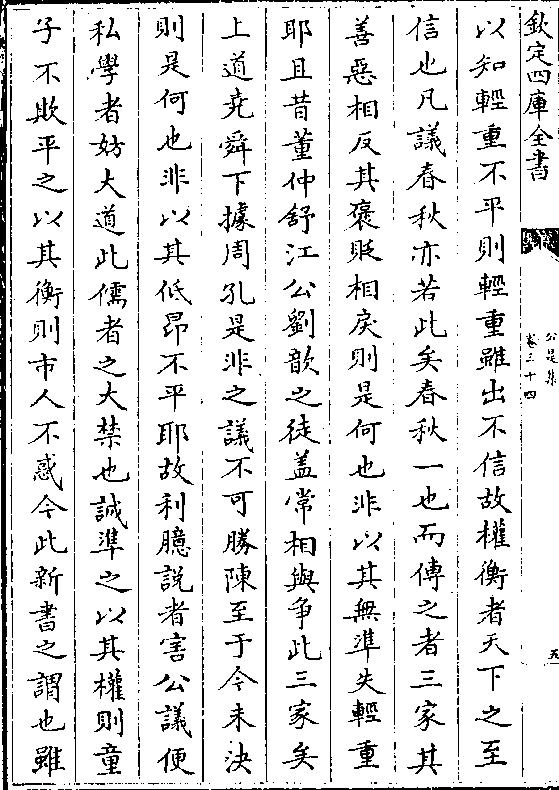 欽定四庫全書
公是集
卷三十四
五
以知輕重不平則輕重雖出不信故權衡者天下之至
信也凡議春秋亦若此矣春秋一也而傳之者三家其
善惡相反其襃貶相戾則是何也非以其無準失輕重
耶且昔董仲舒江公劉歆之徒蓋常相與爭此三家矣
上道堯舜下據周孔是非之議不可勝陳至于今未決
則是何也非以其低昂不平耶故利臆説者害公議便
私學者妨大道此儒者之大禁也誠準之以其權則童
子不欺平之以其衡則市人不惑今此新書之謂也雖